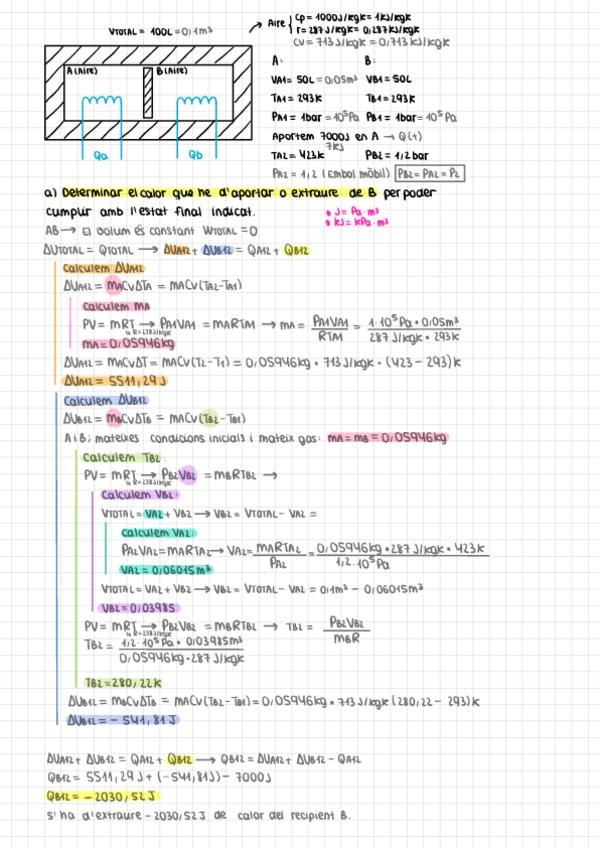 VTOTAL = 100L = 0,1m³
Aire { Cp = 1000J/kgK = 1kJ/kgK
r = 287J/kgK = 0,287kJ/kgK
CV = 713J/kgK = 0,713kJ/kgK
A (Aire) B (Aire)
Qa Qb
A: B:
VA1 = 50L = 0,05m³ VB1 = 50L
TA1 = 293K TB1 = 293K
PA1 = 1bar = 10⁵Pa PB1 = 1bar = 10⁵Pa
Aportem 7000J en A → Q(+)
7kJ
TA2 = 423K PB2 = 1,2bar
PA2 = 1,2 (Embol mòbil) PB2 = PA2 = P2
a) Determinar el calor que he d'aportar o extraure de B per poder
cumplir amb l'estat final indicat.
* J = Pa·m³
* kJ = kPa·m³
AB → El volum és constant WTOTAL = 0
ΔUTOTAL = QTOTAL → ΔUA12 + ΔUB12 = QA12 + QB12
Calculem ΔUA12
ΔUA12 = MACVΔTA = MACV(TA2-TA1)
Calculem MA
PV = MRT → PA1VA1 = MARTA1 → MA = PA1VA1 / RTA1 = 1·10⁵Pa·0,05m³ / 287 J/kgK·293K
MA = 0,05946kg
ΔUA12 = MACVΔT = MACV(T2-T1) = 0,05946kg · 713 J/kgK · (423 - 293)K
ΔUA12 = 5511,29J
Calculem ΔUB12
ΔUB12 = MBCVΔTB = MACV(TB2-TB1)
A i B; mateixes condicions inicials i mateix gas: MA = MB = 0,05946kg
Calculem TB2:
PV = MRT → PB2VB2 = MBRTB2 →
Calculem VB2:
VTOTAL = VA2 + VB2 → VB2 = VTOTAL - VA2 =
Calculem VA2:
PA2VA2 = MARTA2 → VA2 = MARTA2 / PA2 = 0,05946kg · 287 J/kgK · 423K / 1,2·10⁵Pa
VA2 = 0,06015m³
VTOTAL = VA2 + VB2 → VB2 = VTOTAL - VA2 = 0,1m³ - 0,06015m³
VB2 = 0,03985
PV = MRT → PB2VB2 = MBRTB2 → TB2 = PB2VB2 / MBR
TB2 = 1,2·10⁵Pa · 0,03985m³ / 0,05946kg·287 J/kgK
TB2 = 280,22K
ΔUB12 = MBCVΔTB = MACV(TB2-TB1) = 0,05946kg · 713 J/kgK (280,22 - 293)K
ΔUB12 = - 541,81J
ΔUA12 + ΔUB12 = QA12 + QB12 → QB12 = ΔUA12 + ΔUB12 - QA12
QB12 = 5511,29J + (-541,81J) - 7000J
QB12 = - 2030,52J
S'ha d'extraure - 2030,52J de calor del recipient B.